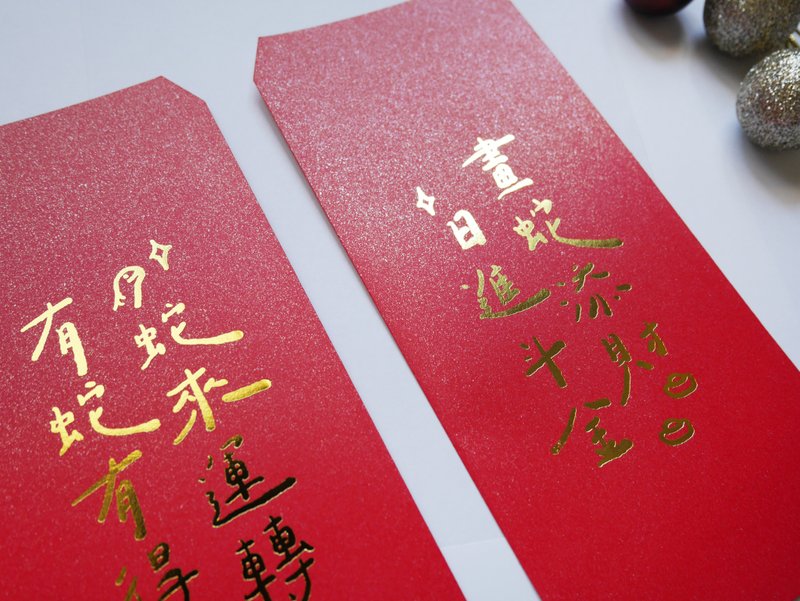 畫蛇添財
日進斗金
蛇來運轉
有蛇有得